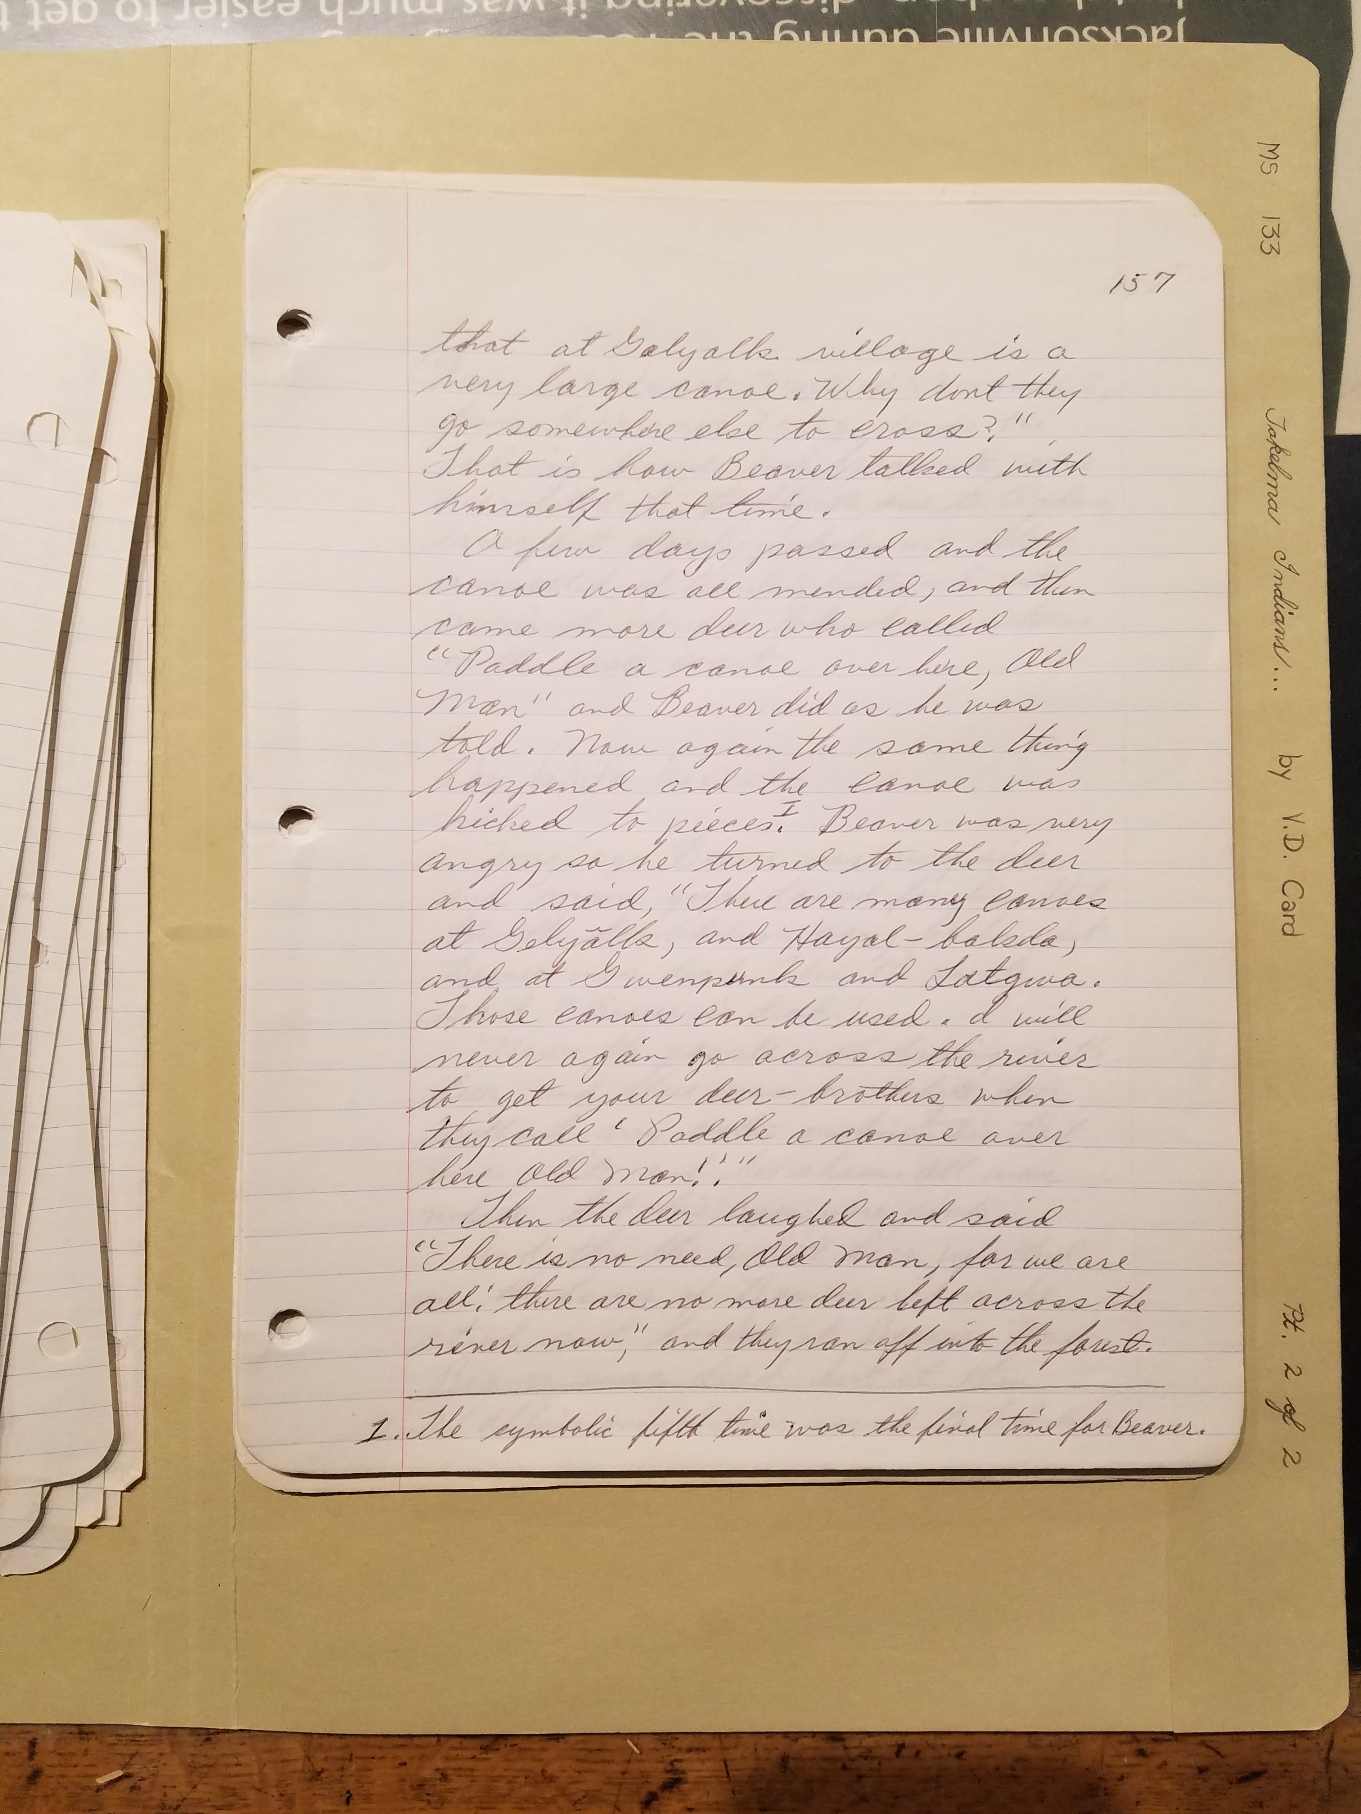 157
that at Gelyalk village is a
very large canoe. Why dont they
go somewhere else to cross?."
That is how Beaver talked with
himself that time.
A few days passed and the
canoe was all mended, and then
came more deer who called
"Paddle a canoe over here, Old
Man" and Beaver did as he was
told. Now again the same thing
happened and the canoe was
kicked to pieces.¹ Beaver was very
angry so he turned to the deer
and said, "There are many canoes
at Gelyālk, and Hayal-balsda,
and at Gwenpunk and Latgwa.
Those canoes can be used. I will
never again go across the river
to get your deer-brothers when
they call 'Paddle a canoe over
here Old Man!'."
Then the deer laughed and said
"There is no need, Old Man, for we are
all; there are no more deer left across the
river now," and they ran off into the forest.
1. The symbolic fifth time was the final time for Beaver.
MS 133 Takelma Indians... by V.D. Card Pt. 2 of 2
jacksonville during the
discovering it was much easier to get